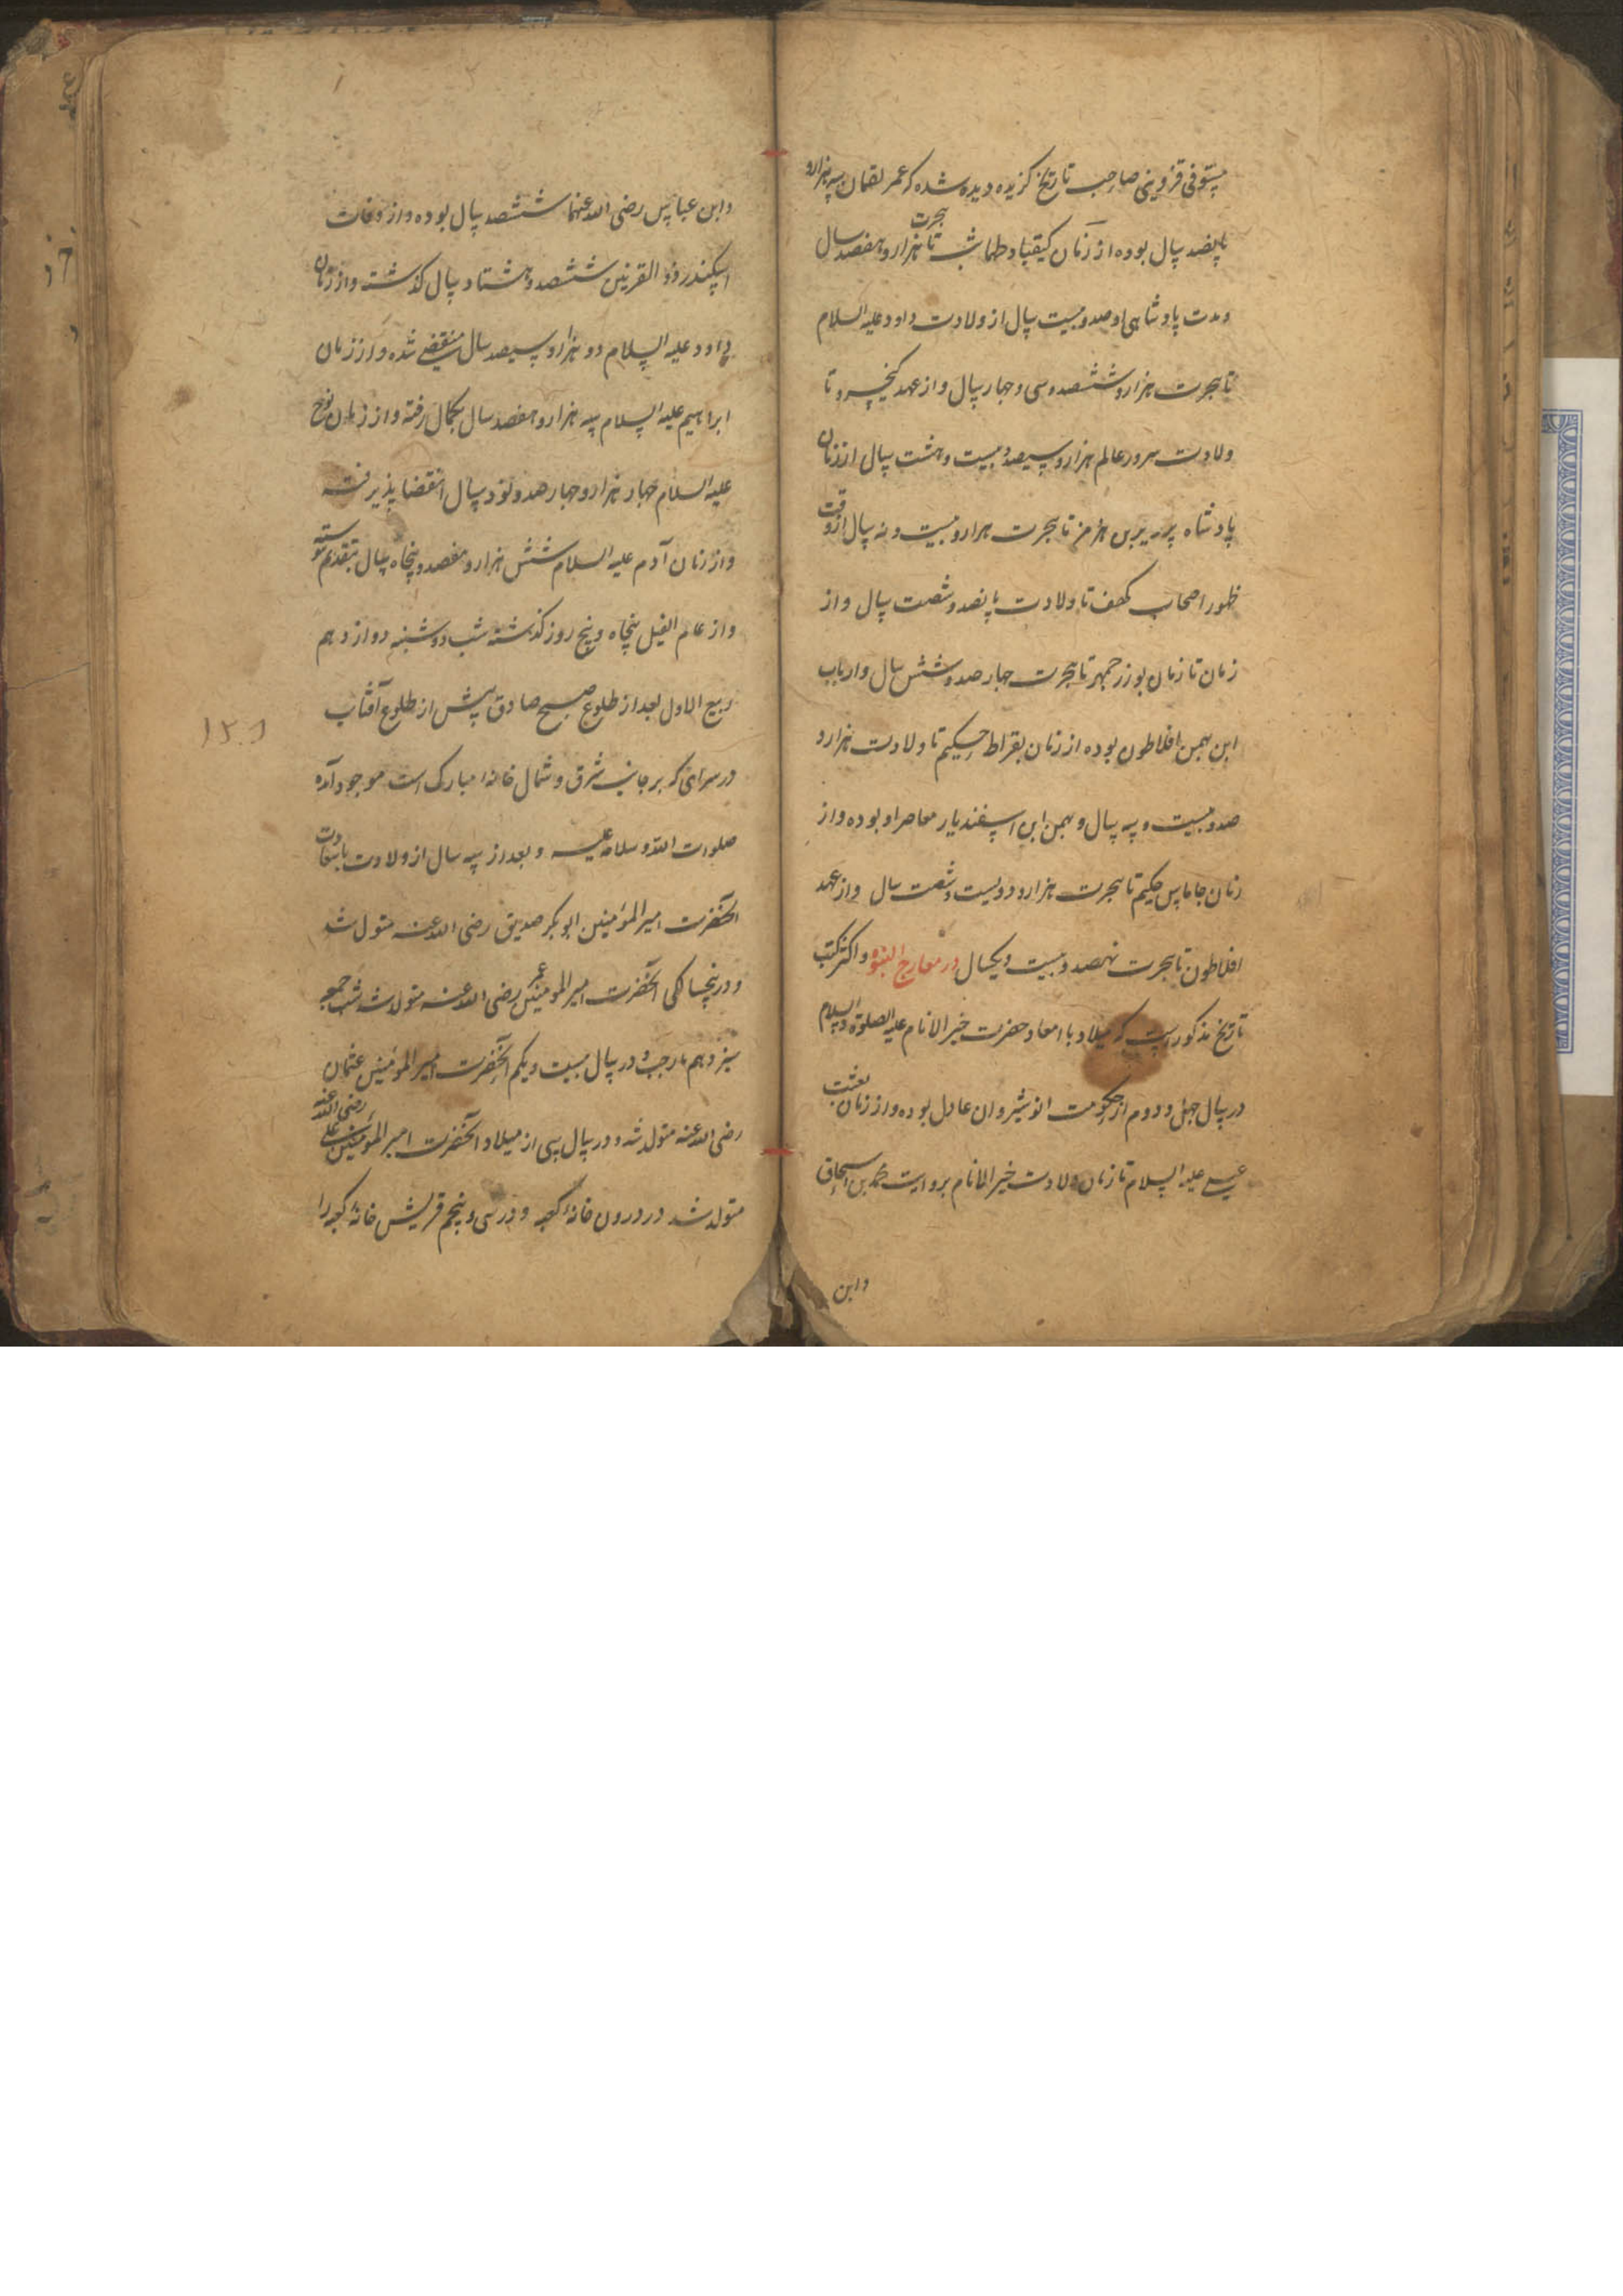 مستوفی قزوینی صاحب تاریخ گزیده دیده شده که عمر لقمان سه هزار و
پانصد سال بوده از زمان کیقباد و طهماسب تا هجرت هزار و هفصد سال
و مدت پادشاهی او صد و بیست سال از ولادت داود علیه السلام
تا هجرت هزار و ششصد و سی و چهار سال و از عهد کیخسرو تا
ولادت سرور عالم هزار و سیصد و بیست و هشت سال از زمان
پادشاه بن هرمز تا هجرت هزار و بیست و نه سال از وقت
ظهور اصحاب کهف تا ولادت پانصد و شصت سال و از
زمان تا زمان بوزرجمهر تا هجرت چهار صد و شش سال
ابن بهمن افلاطون بوده از زمان بقراط حکیم تا ولادت هزار و
صد و بیست و سه سال و بهمن ابن اسفندیار معاصر او بوده و از
زمان جاماس حکیم تا هجرت هزار و دویست و شصت سال و از عهد
افلاطون تا هجرت نهصد و بیست و یکسال در معارج النبوة و اکثر کتب
تاریخ مذکور است که میلاد با امعاد حضرت خیر الانام علیه الصلوة و السلام
در سال چهل و دوم از حکومت انوشیروان عادل بوده و از زمان بعثت
عیسی علیه السلام تا زمان ولادت خیر الانام بروایت محمد بن اسحاق
وابن
وابن عباس رضی الله عنهما ششصد سال بوده و از وفات
اسکندر ذو القرنین ششصد و هشتاد سال گذشته و از زمان
داود علیه السلام دو هزار و سیصد سال منقضی شده و از زمان
ابراهیم علیه السلام سه هزار و هفصد سال بکمال رفته و از زمان نوح
علیه السلام چهار هزار و چهار صد و نود سال انقضا پذیرفته
و از زمان آدم علیه السلام شش هزار و هفصد و پنجاه سال بتقدیم پیوسته
و از عام الفیل پنجاه و پنج روز گذشته شب دوشنبه دوازدهم
ربیع الاول بعد از طلوع صبح صادق پیش از طلوع آفتاب
در سرای که بر جانب شرق و شمال خانه مبارک است موجود آمده
صلوات الله و سلامه علیه و بعد از سه سال از ولادت باسعادت
آنحضرت امیر المؤمنین ابو بکر صدیق رضی الله عنه متولد شد
و در پنجسالگی آنحضرت امیر المومنین عمر رضی الله عنه متولد شد شب جمعه
سیزدهم رجب و در سال بیست و یکم آنحضرت امیر المومنین عثمان
رضی الله عنه متولد شد و در سال سی از میلاد آنحضرت امیر المومنین علی رضی الله عنه
متولد شد در درون خانه کعبه و در سی و پنجم قریش خانه کعبه را